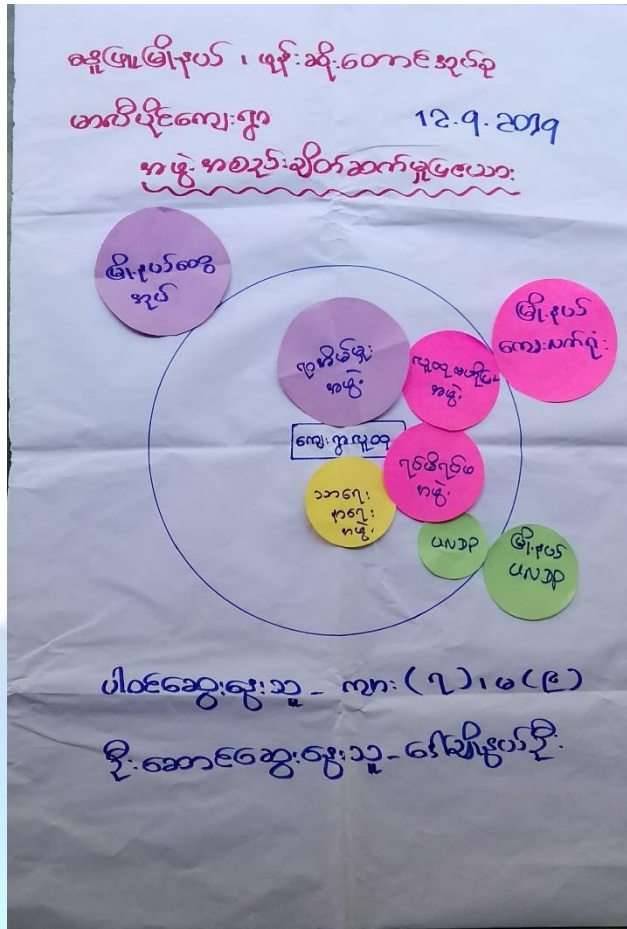 ဆူးဖြူမြို့နယ်၊ ဖုန်းဆိုးတောင်အုပ်စု
မာလီပိုင်ကျေးရွာ
12.9.2019
အဖွဲ့အစည်းချိတ်ဆက်မှုပြယား
မြို့နယ်ထွေ
အုပ်
မြို့နယ်
ကျေးလက်ရုံး
ရာအိမ်မှူး
အဖွဲ့
အဖွဲ့
ကျေးရွာလူထု
ရပ်မိရပ်ဖ
အဖွဲ့
သာရေး
နာရေး
အဖွဲ့
UNDP
မြို့နယ်
UNDP
ပါဝင်ဆွေးနွေးသူ - ကျား (၇)၊ မ (၉)
ဦးဆောင်ဆွေးနွေးသူ - ဒေါ်ချိုနွယ်ဦး